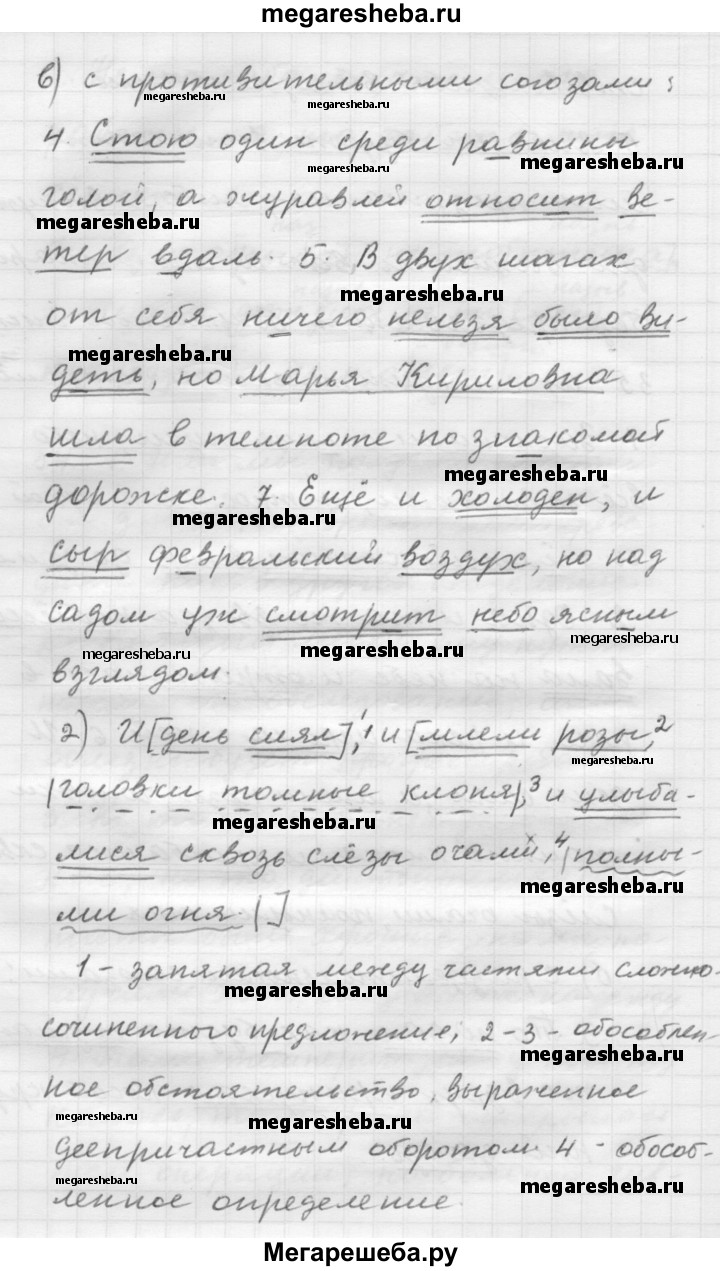 megaresheba.ru
в) с противительными союзами:
megaresheba.ru megaresheba.ru
4. Стою один среди равнины
megaresheba.ru megaresheba.ru
голой, а журавлей относит ве-
megaresheba.ru
тер вдаль. 5. В двух шагах
megaresheba.ru
от себя ничего нельзя было ви-
megaresheba.ru
деть, но Марья Кириловна
шла в темноте по знакомой
megaresheba.ru
дорожке. 7. Ещё и холоден, и
megaresheba.ru
сыр февральский воздух, но над
садом уж смотрит небо ясным
megaresheba.ru megaresheba.ru megaresheba.ru
взглядом.
2) И [день сиял],¹ и [млели розы,²
megaresheba.ru
|головки томные клоня|,³ и улыба-
megaresheba.ru
лися сквозь слёзы очамиˣ,⁴ |полны-
megaresheba.ru
ми огня|]
1 - запятая между частями сложно-
megaresheba.ru
сочиненного предложение; 2-3 - обособлен-
megaresheba.ru
ное обстоятельство, выраженное
megaresheba.ru megaresheba.ru
деепричастным оборотом. 4 - обособ-
megaresheba.ru megaresheba.ru
ленное определение.
Мегарешеба.ру